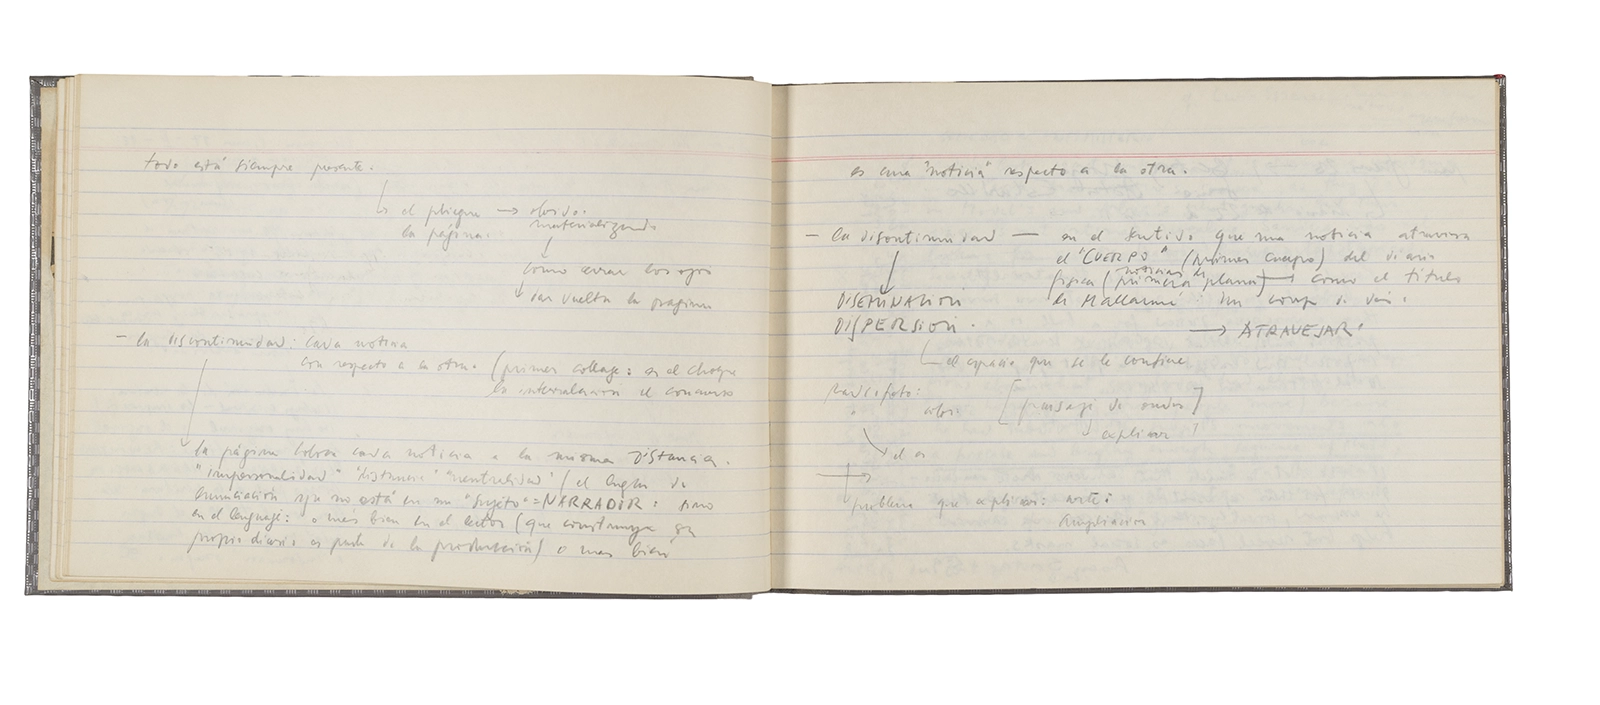 todo está siempre presente.
el pliegue → olvido.
la página. materializando
como cerrar los ojos
dar vuelta la página
– la discontinuidad: cada noticia
con respecto a la otra. (primer collage: es el choque
la intercalación el
la página coloca cada noticia a la misma DISTANCIA.
"impersonalidad" "distancia" "neutralidad" (el lugar de
enunciación no está en un "sujeto" = NARRADOR: sino
en el lenguaje: o más bien en el lector (que construye su
propio diario es parte de la producción) o más bien
es una "noticia" respecto a la otra.
– la discontinuidad — en el sentido que una noticia atraviesa
el "CUERPO" (primer cuerpo) del diario
física (noticias de primera plana) → como el título
DISEMINACION de Mallarmé: Un coup de dés.
DISPERSION. → ATRAVESAR.
el espacio que se le confiere
color. [paisaje de ondas]
explicar ?
el
problema que explicar: arte:
ampliacion